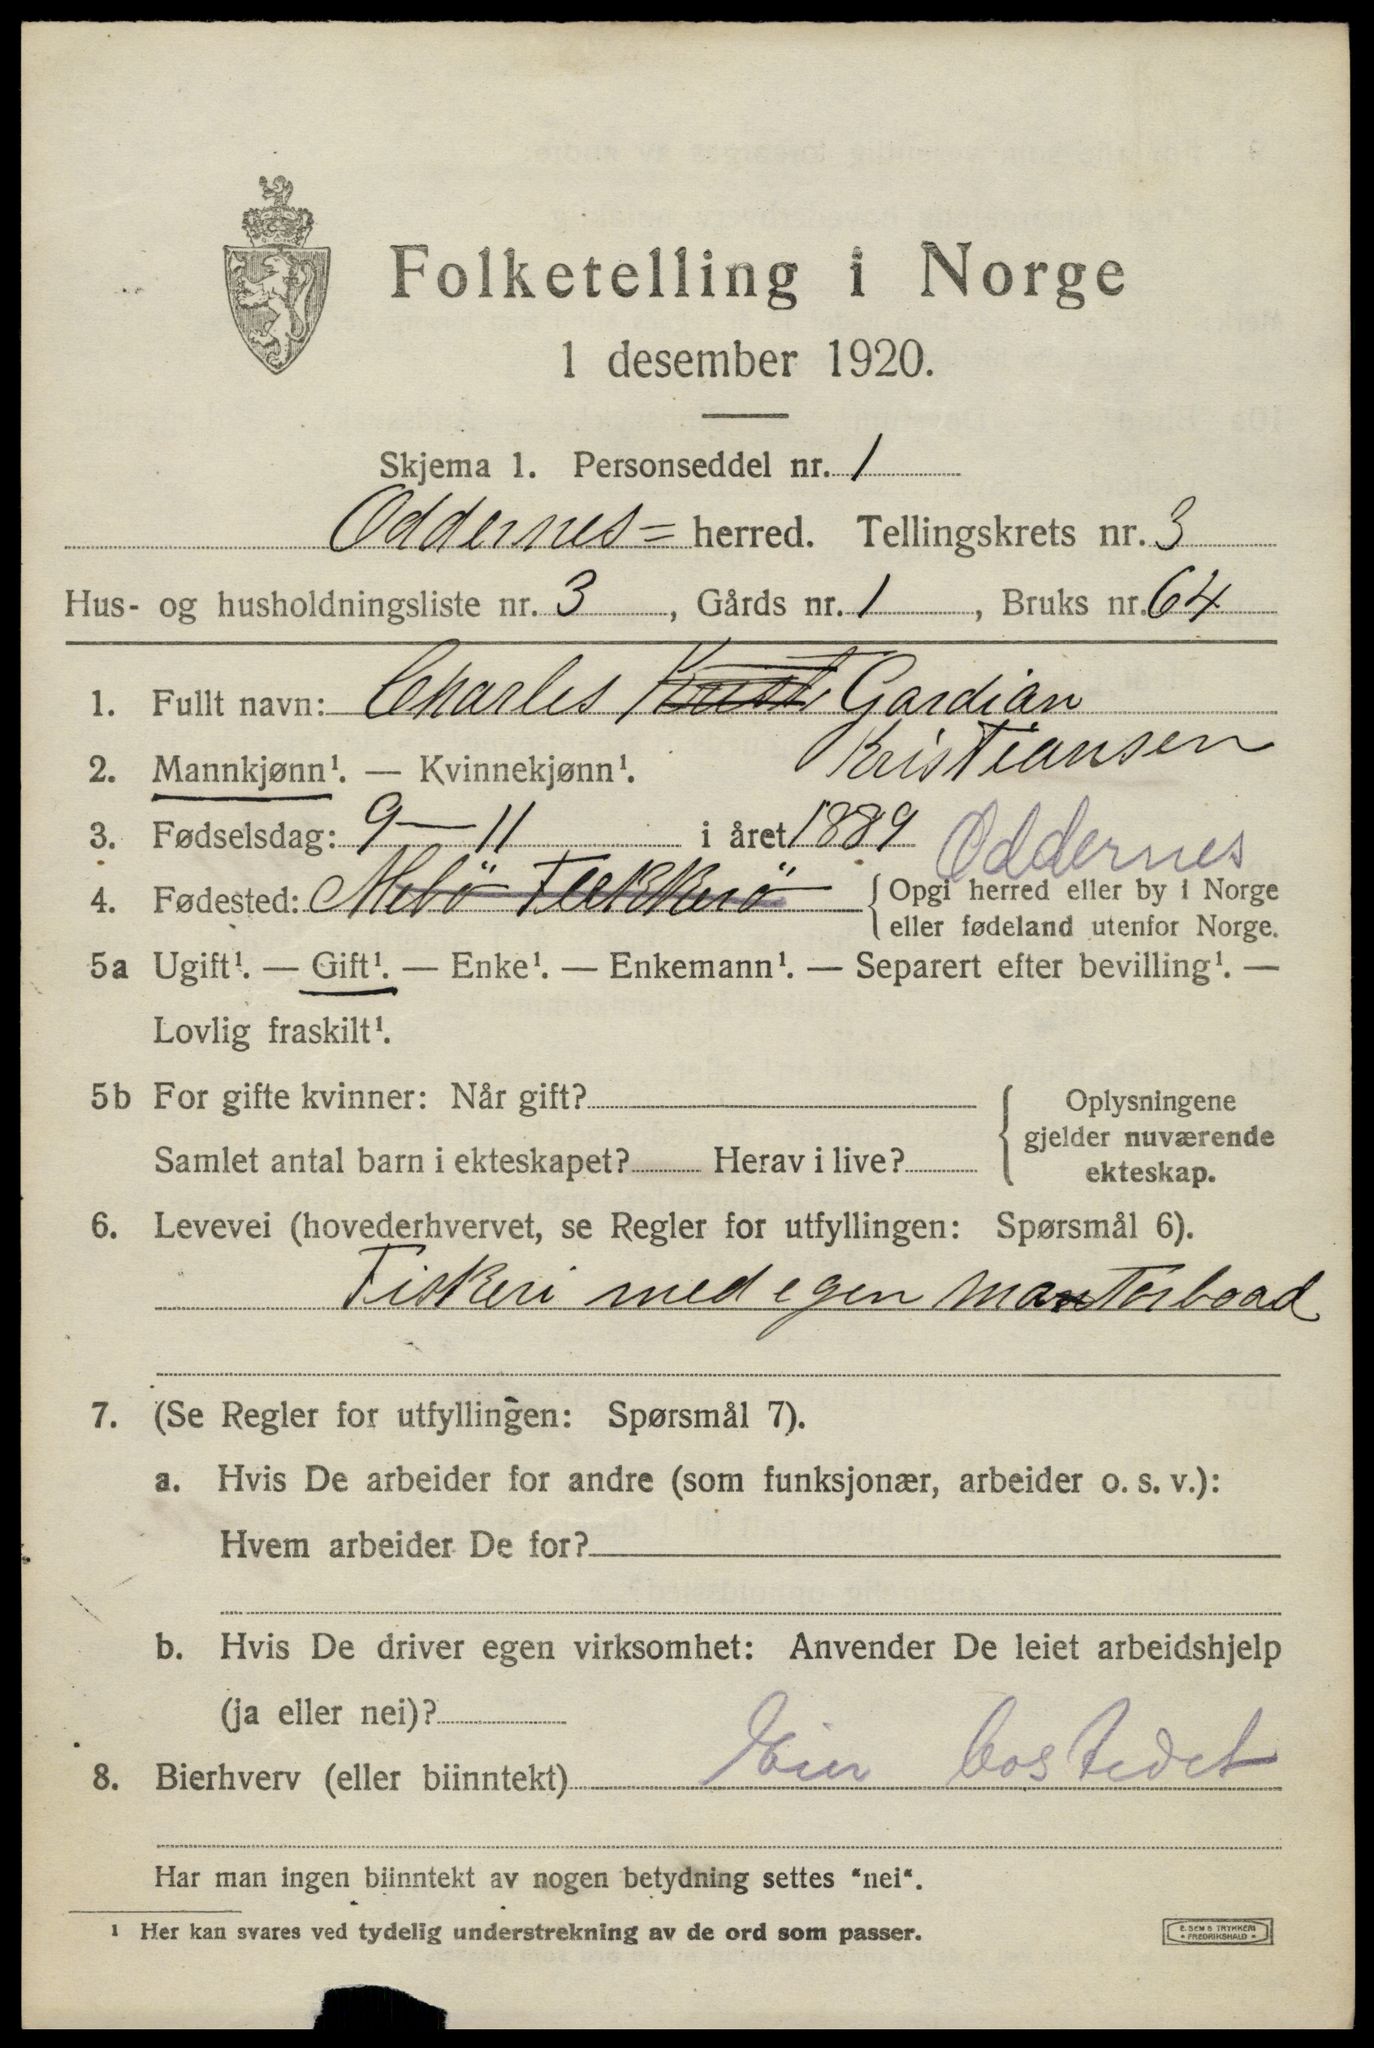 Folketelling i Norge
1 desember 1920.
Skjema 1. Personseddel nr. 1
Oddernes= herred. Tellingskrets nr. 3
Hus- og husholdningsliste nr. 3, Gårds nr. 1, Bruks nr. 64
1. Fullt navn: Charles Gardian
Kristiansen
2. Mannkjønn¹. — Kvinnekjønn¹.
3. Fødselsdag: 9—11 i året 1889
Oddernes
4. Fødested: Mebö Flekkerö { Opgi herred eller by i Norge
eller fødeland utenfor Norge.
5a Ugift¹. — Gift¹. — Enke¹. — Enkemann¹. — Separert efter bevilling¹. —
Lovlig fraskilt¹.
5b For gifte kvinner: Når gift?
Samlet antal barn i ekteskapet? Herav i live?
{ Oplysningene
gjelder nuværende
ekteskap.
6. Levevei (hovederhvervet, se Regler for utfyllingen: Spørsmål 6).
Fiskeri med egen motorboad
7. (Se Regler for utfyllingen: Spørsmål 7).
a. Hvis De arbeider for andre (som funksjonær, arbeider o. s. v.):
Hvem arbeider De for?
b. Hvis De driver egen virksomhet: Anvender De leiet arbeidshjelp
(ja eller nei)?
8. Bierhverv (eller biinntekt) Eier bostedet
Har man ingen biinntekt av nogen betydning settes "nei".
¹ Her kan svares ved tydelig understrekning av de ord som passer.
E. SEM'S TRYKKERI
* FREDRIKSHALD *